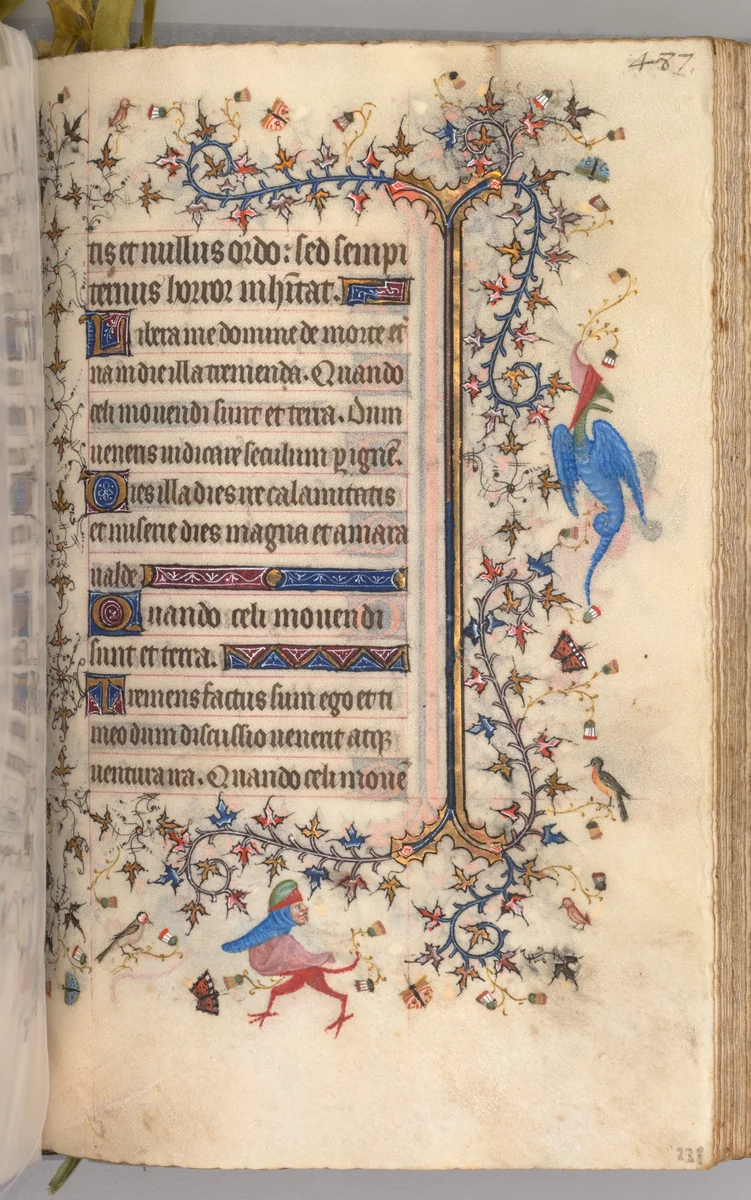 487.
tis et nullus ordo: sed sempi
ternus horror inhītat.
Libera me domine de morte et̄
na in die illa tremenda. Quando
celi mouendi sunt et terra. Dum
ueneris iudicare seculum ꝑ ignē.
Dies illa dies ire calamitatis
et miserie dies magna et amara
ualde
Quando celi mouendi
sunt et terra.
Tremens factus sum ego et ti
meo dum discussio uenerit atqꝫ
uentura ira. Quando celi mouē
238